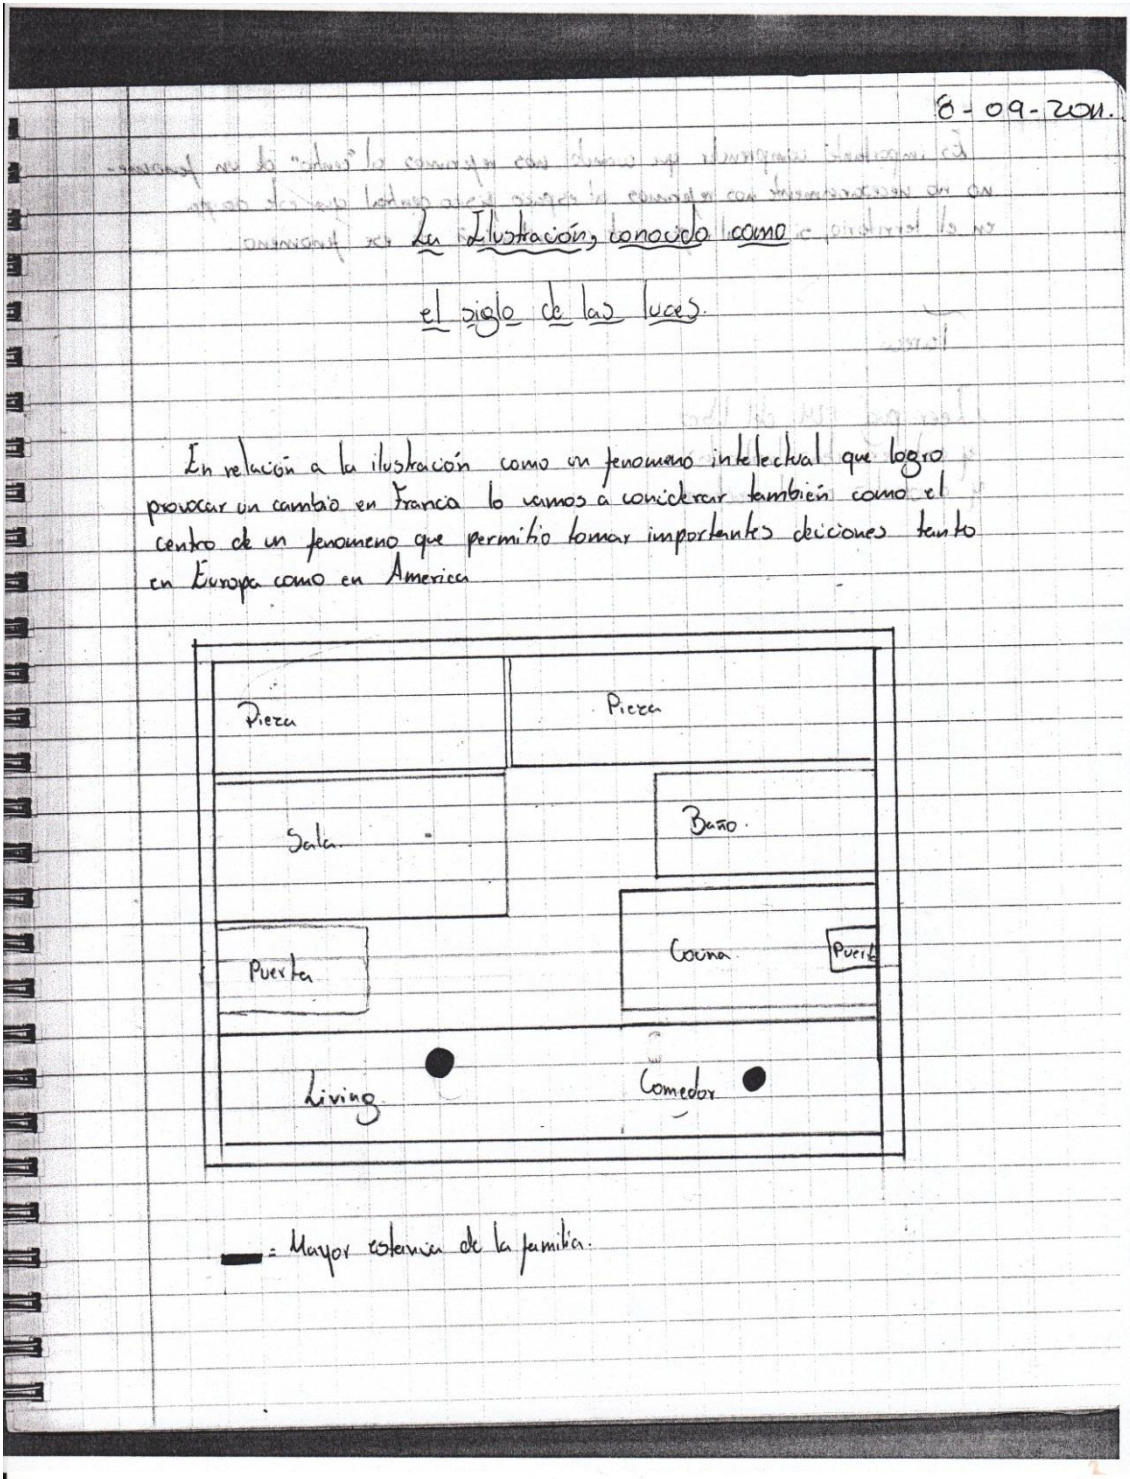 8-09-2011.
La Ilustración, conocido como
el siglo de las luces.
En relación a la ilustración como un fenomeno intelectual que logro
provocar un cambio en Francia lo vamos a conciderar también como el
centro de un fenomeno que permitio tomar importantes deciciones tanto
en Europa como en America
Pieza
Pieza
Sala.
Baño.
Puerta
Cocina
Puerta
Living
Comedor
= Mayor estancia de la familia.
2